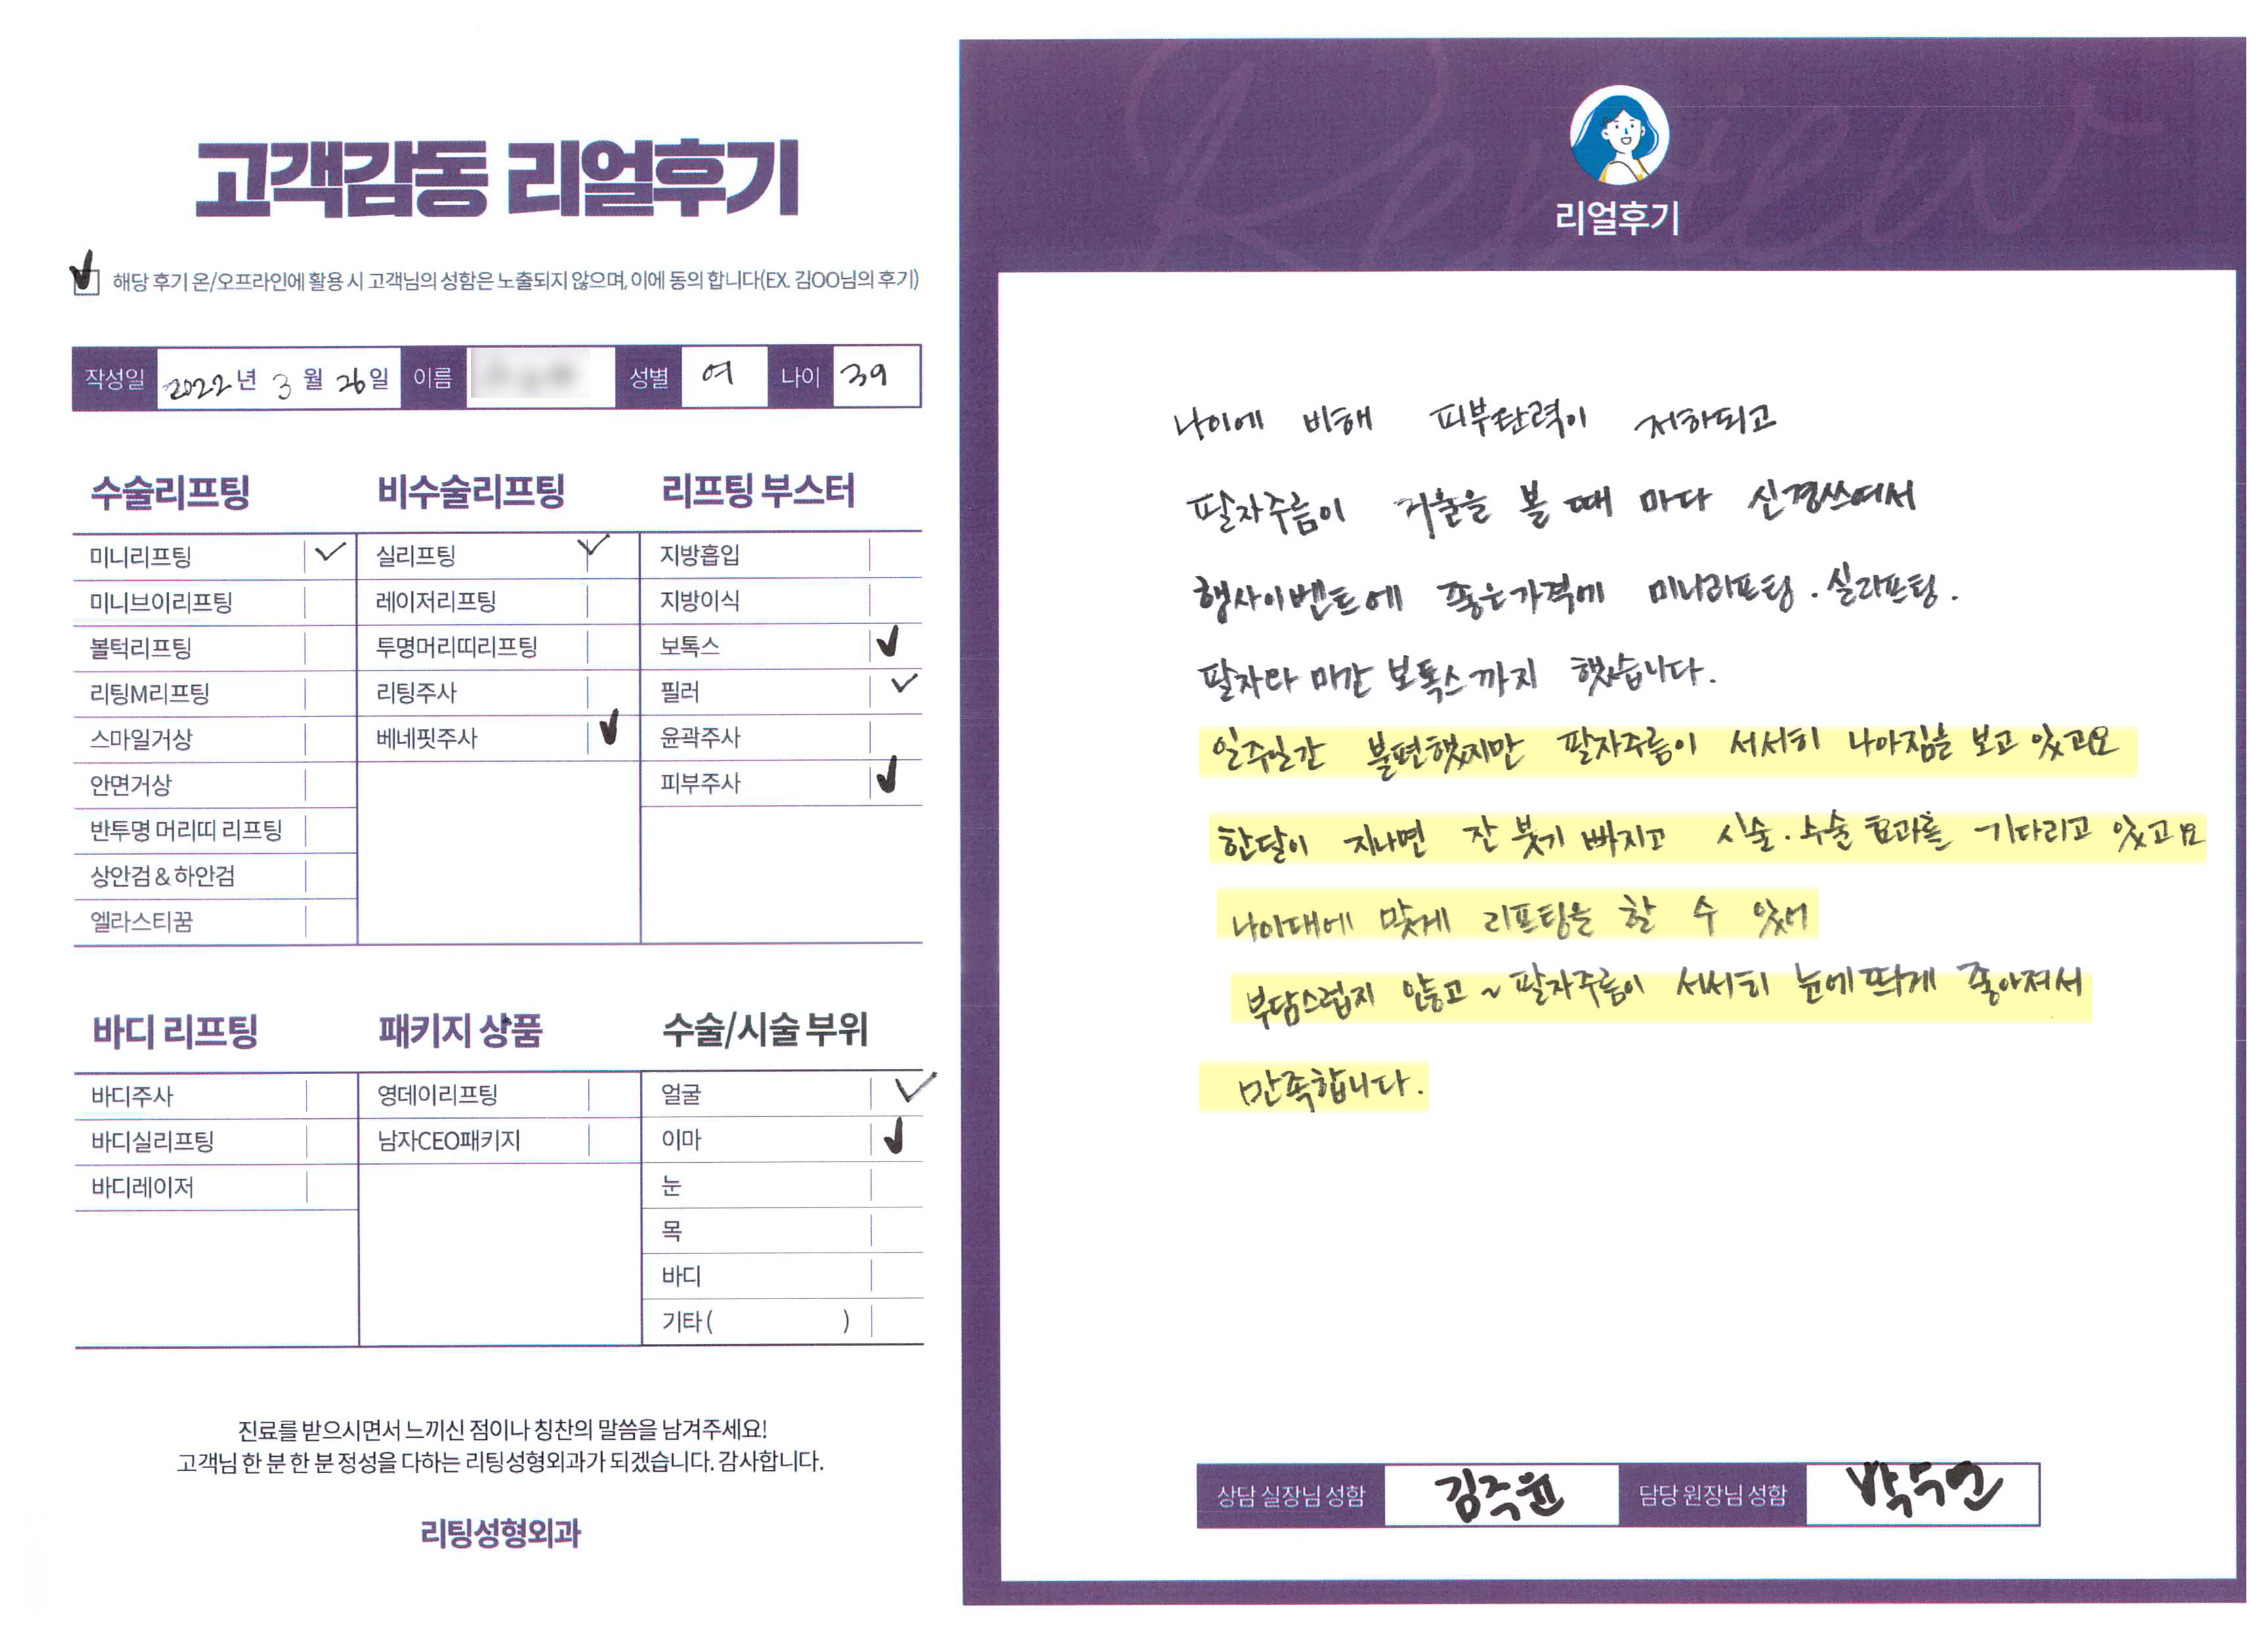 고객감동 리얼후기
해당 후기 온/오프라인에 활용 시 고객님의 성함은 노출되지 않으며, 이에 동의 합니다(EX. 김OO님의 후기)
작성일 2022년 3월 26일 이름 성별 여 나이 39
수술리프팅
미니리프팅
미니브이리프팅
볼턱리프팅
리팅M리프팅
스마일거상
안면거상
반투명 머리띠 리프팅
상안검 & 하안검
엘라스티꿈
비수술리프팅
실리프팅
레이저리프팅
투명머리띠리프팅
리팅주사
베네핏주사
리프팅 부스터
지방흡입
지방이식
보톡스
필러
윤곽주사
피부주사
바디 리프팅
바디주사
바디실리프팅
바디레이저
패키지 상품
영데이리프팅
남자CEO패키지
수술/시술 부위
얼굴
이마
눈
목
바디
기타 ( )
진료를 받으시면서 느끼신 점이나 칭찬의 말씀을 남겨주세요!
고객님 한 분 한 분 정성을 다하는 리팅성형외과가 되겠습니다. 감사합니다.
리팅성형외과
Review
리얼후기
나이에 비해 피부탄력이 저하되고
팔자주름이 거울을 볼 때 마다 신경쓰여서
행사이벤트에 좋은가격에 미니리프팅. 실리프팅.
팔자와 미간 보톡스까지 했습니다.
일주일간 불편했지만 팔자주름이 서서히 나아짐을 보고 있고요
한달이 지나면 잔 붓기 빠지고 시술. 수술 효과를 기다리고 있고요
나이대에 맞게 리프팅을 할 수 있어
부담스럽지 않고 ~ 팔자주름이 서서히 눈에띄게 좋아져서
만족합니다.
상담 실장님 성함 김주윤 담당 원장님 성함